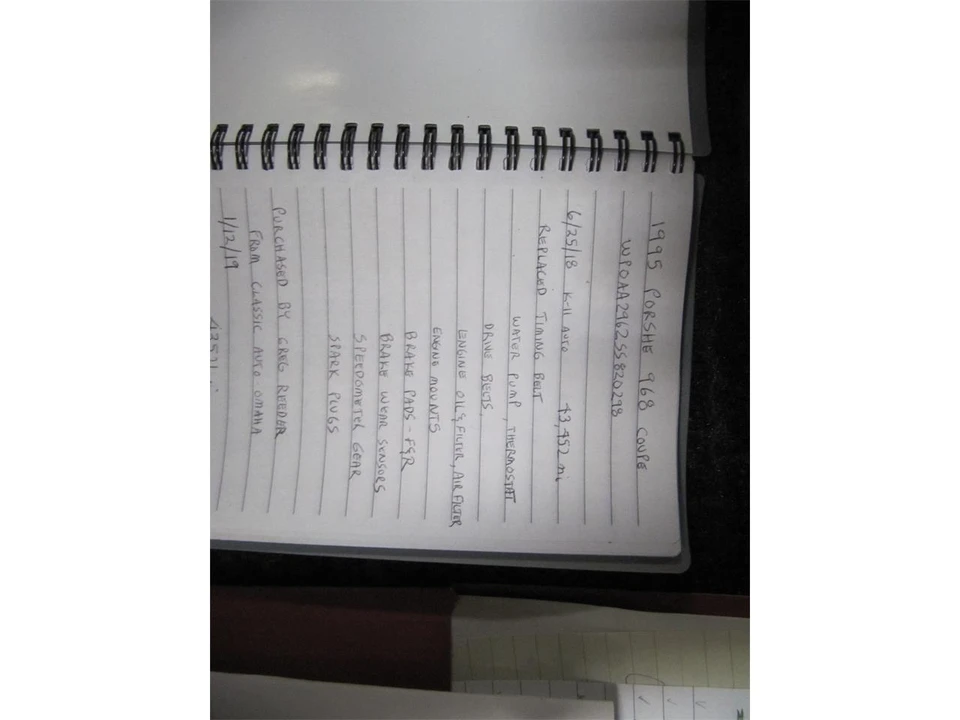 1995 PORSHE 968 COUPE
WPOAA2962SS820298
6/25/18 Kill AUTO 43,452 mi
REPLACED TIMING BELT
WATER PUMP, THERMOSTAT
DRIVE BELTS
ENGINE OIL & FILTER, AIR FILTER
ENGINE MOUNTS
BRAKE PADS - F&R
BRAKE WEAR SENSORS
SPEEDOMETER GEAR
SPARK PLUGS
PURCHASED BY GREG REEDER
FROM CLASSIC AUTO - OMAHA
1/12/19